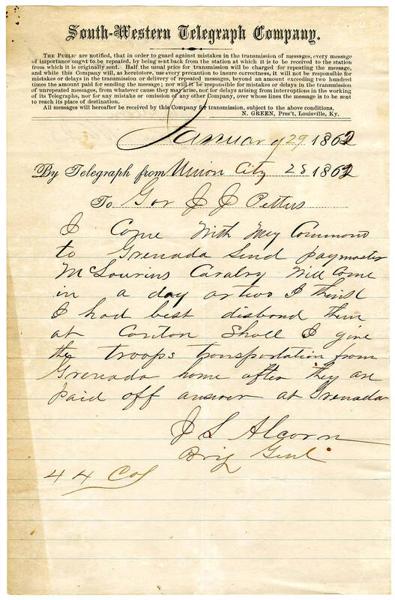 South-Western Telegraph Company.
THE PUBLIC are notified, that in order to guard against mistakes in the transmission of messages, every message
of importance ought to be repeated, by being sent back from the station at which it is to be received to the station
from which it is originally sent. Half the usual price for transmission will be charged for repeating the message,
and while this Company will, as heretofore, use every precaution to insure correctness, it will not be responsible for
mistakes or delays in the transmission or delivery of repeated messages, beyond an amount exceeding two hundred
times the amount paid for sending the message; nor will it be responsible for mistakes or delays in the transmission
of unrepeated messages, from whatever cause they may arise, nor for delays arising from interruptions in the working
of its Telegraphs, nor for any mistake or omission of any other Company, over whose lines the message is to be sent
to reach its place of destination.
All messages will hereafter be received by this Company for transmission, subject to the above conditions.
N. GREEN, Pres't, Louisville, Ky.
January 29 1862
By Telegraph from Union City 28 1862
To Gov J J Pettus
I Come With My Command
to Grenada Send paymaster
McLourins Cavalry Will Come
in a day or two I think
I had best disband them
at Canton Shall I give
the troops transportation from
Grenada home after they are
paid off answer at Grenada
J L Alcorn
Brig Genl
44 Col